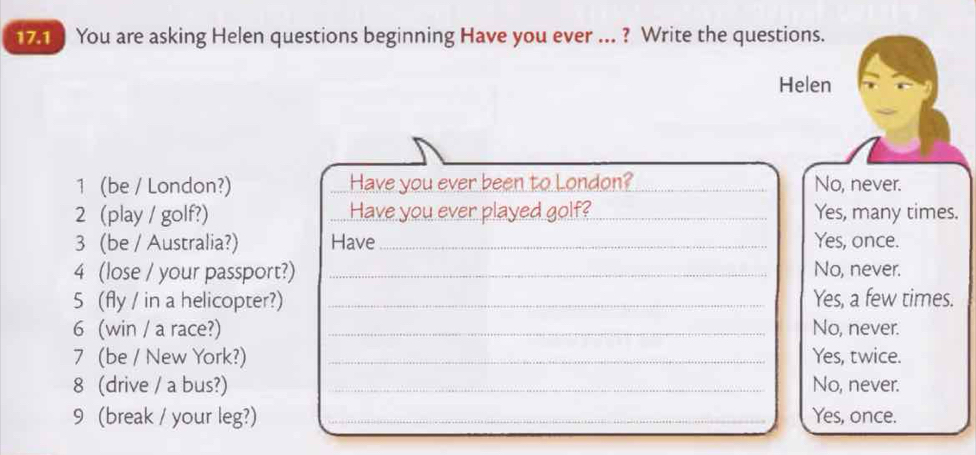 17.1 You are asking Helen questions beginning Have you ever ... ? Write the questions.
Helen
1 (be / London?) Have you ever been to London? No, never.
2 (play / golf?) Have you ever played golf? Yes, many times.
3 (be / Australia?) Have Yes, once.
4 (lose / your passport?) No, never.
5 (fly / in a helicopter?) Yes, a few times.
6 (win / a race?) No, never.
7 (be / New York?) Yes, twice.
8 (drive / a bus?) No, never.
9 (break / your leg?) Yes, once.